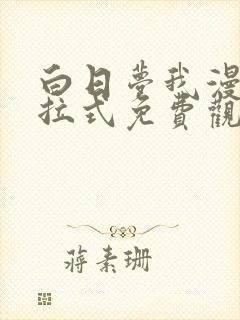 白日夢我漫
拉式免費觀
蔣素珊